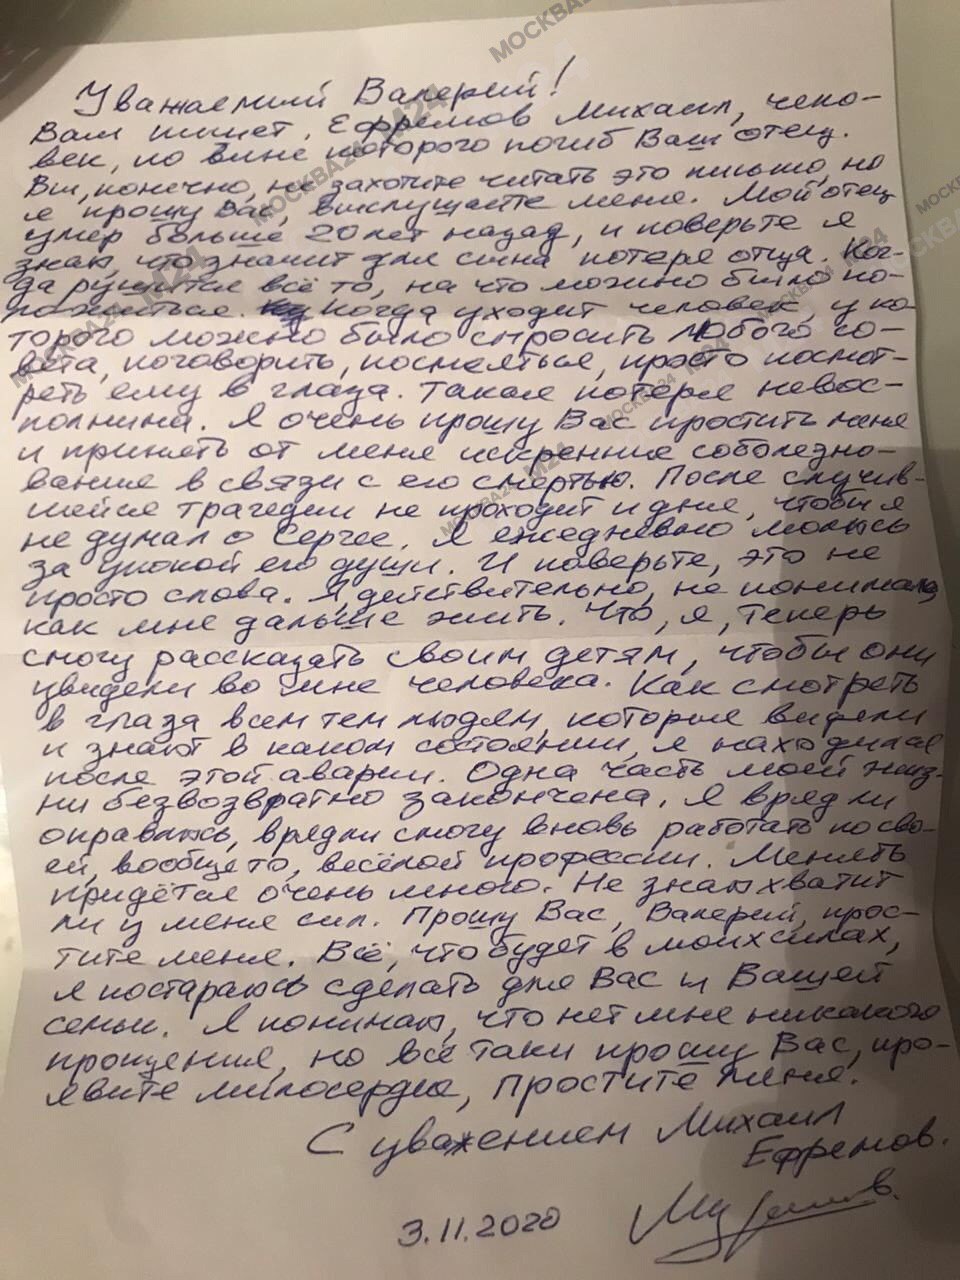 Уважаемый Валерий!
Вам пишет, Ефремов Михаил, чело-
век, по вине которого погиб Ваш отец.
Вы, конечно, не захотите читать это письмо, но
я прошу Вас, выслушаете меня. Мой отец
умер больше 20 лет назад, и поверьте я
знаю, что значит для сына потеря отца. Ког-
да рушится всё то, на что можно было по-
ложиться. Когда уходит человек, у ко-
торого можно было спросить любого со-
вета, поговорить, посмеяться, просто посмот-
реть ему в глаза. Такая потеря невос-
полнима. Я очень прошу Вас простить меня
и принять от меня искренние соболезно-
вание в связи с его смертью. После случив-
шейся трагедии не проходит и дня, чтобы я
не думал о Сергее. Я ежедневно молюсь
за упокой его души. И поверьте, это не
просто слова. Я, действительно, не понимаю,
как мне дальше жить. Что, я, теперь
смогу рассказать своим детям, чтобы они
увидели во мне человека. Как смотреть
в глаза всем тем людям, которые видели
и знают в каком состоянии, я находился
после этой аварии. Одна часть моей жиз-
ни безвозвратно закончена. Я вряд ли
оправлюсь, вряд ли смогу вновь работать по сво-
ей, вообще то, весёлой профессии. Менять
придётся очень много. Не знаю хватит
ли у меня сил. Прошу Вас, Валерий, прос-
тите меня. Всё, что будет в моих силах,
я постараюсь сделать для Вас и Вашей
семьи. Я понимаю, что нет мне никакого
прощения, но всё таки прошу Вас, про-
явите милосердие, простите меня.
С уважением Михаил
Ефремов.
3.11.2020
МОСКВА24 М24
МОСКВА24 М24
МОСКВА24 М24
МОСКВА24 М24